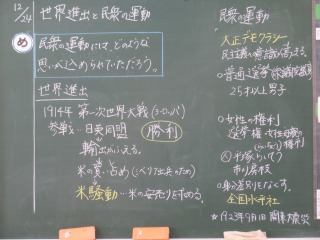 12/24
世界進出と民衆の運動
め
民衆の運動には、どのような
思いが込められていただろう。
世界進出
1914年 第一次世界大戦(ヨーロッパ)
参戦…日英同盟 勝利
輸出がふえる。
米の買い占め(シベリア出兵のため)
米騒動…米の安売りを求める。
民衆の運動
大正デモクラシー
民主主義への意識が高まる。
○普通選挙
25才以上男子
○女性の権利
選挙権・女性の
権利
平塚らいてう
市川房枝
○身分差別をなくす。
全国水平社
★1923年9月1日 関東大震災